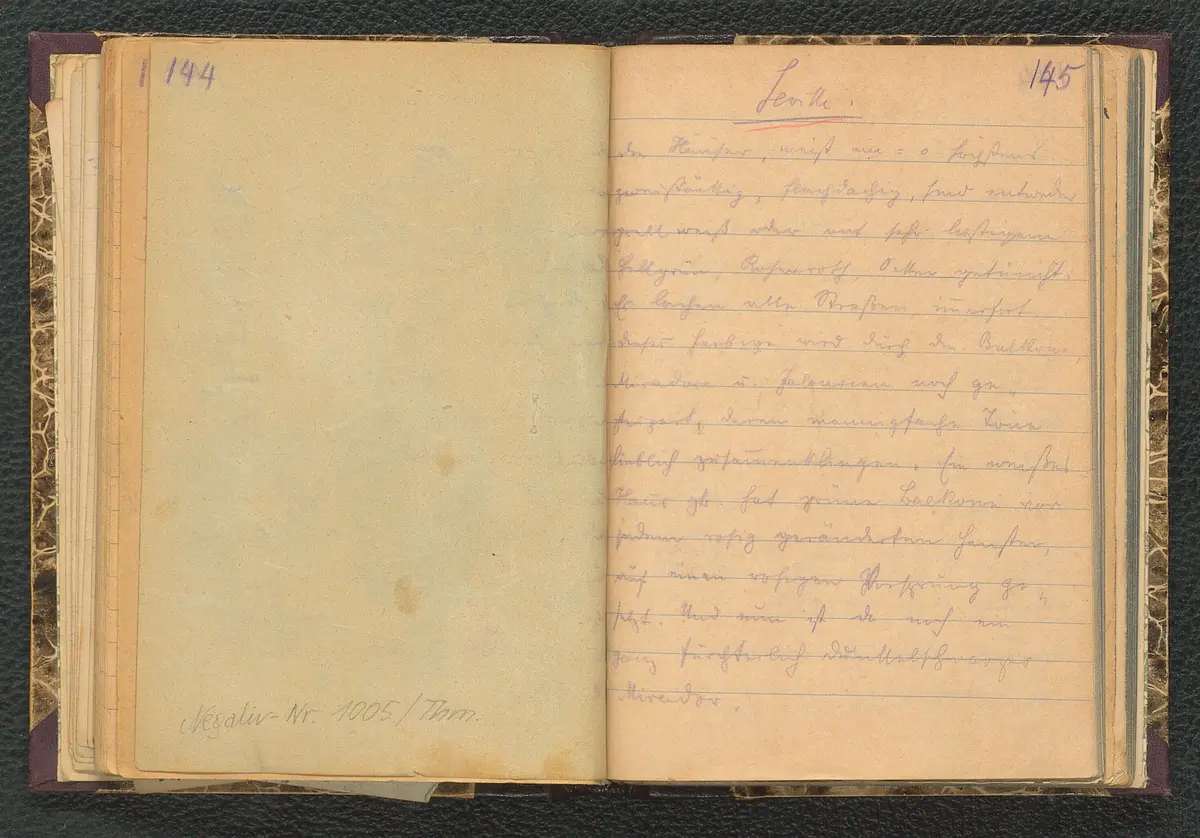 144
Negativ-Nr. 1005/Thm.
145
Sevilla.
die Häuser, meist ein= o. höchstens
zweistöckig, flachdachig, sind entweder
grell weiß oder mit sehr lustigem
Hellgrün, Rosenroth, Ocker getüncht.
Es lachen alle Straßen,
dieses Farbige wird durch die Balkone,
Miradore u. Jalousien noch ge„
steigert, deren mannigfache Töne
lieblich zusam̅enklingen. Ein weißes
Haus zb. hat grüne Balkone vor
jedem rosig geränderten Fenster,
auf einen rosigen Vorsprung ge„
setzt. Und nun ist da noch ein
ganz fürchterlich dunkelschwarzer
Mirador.